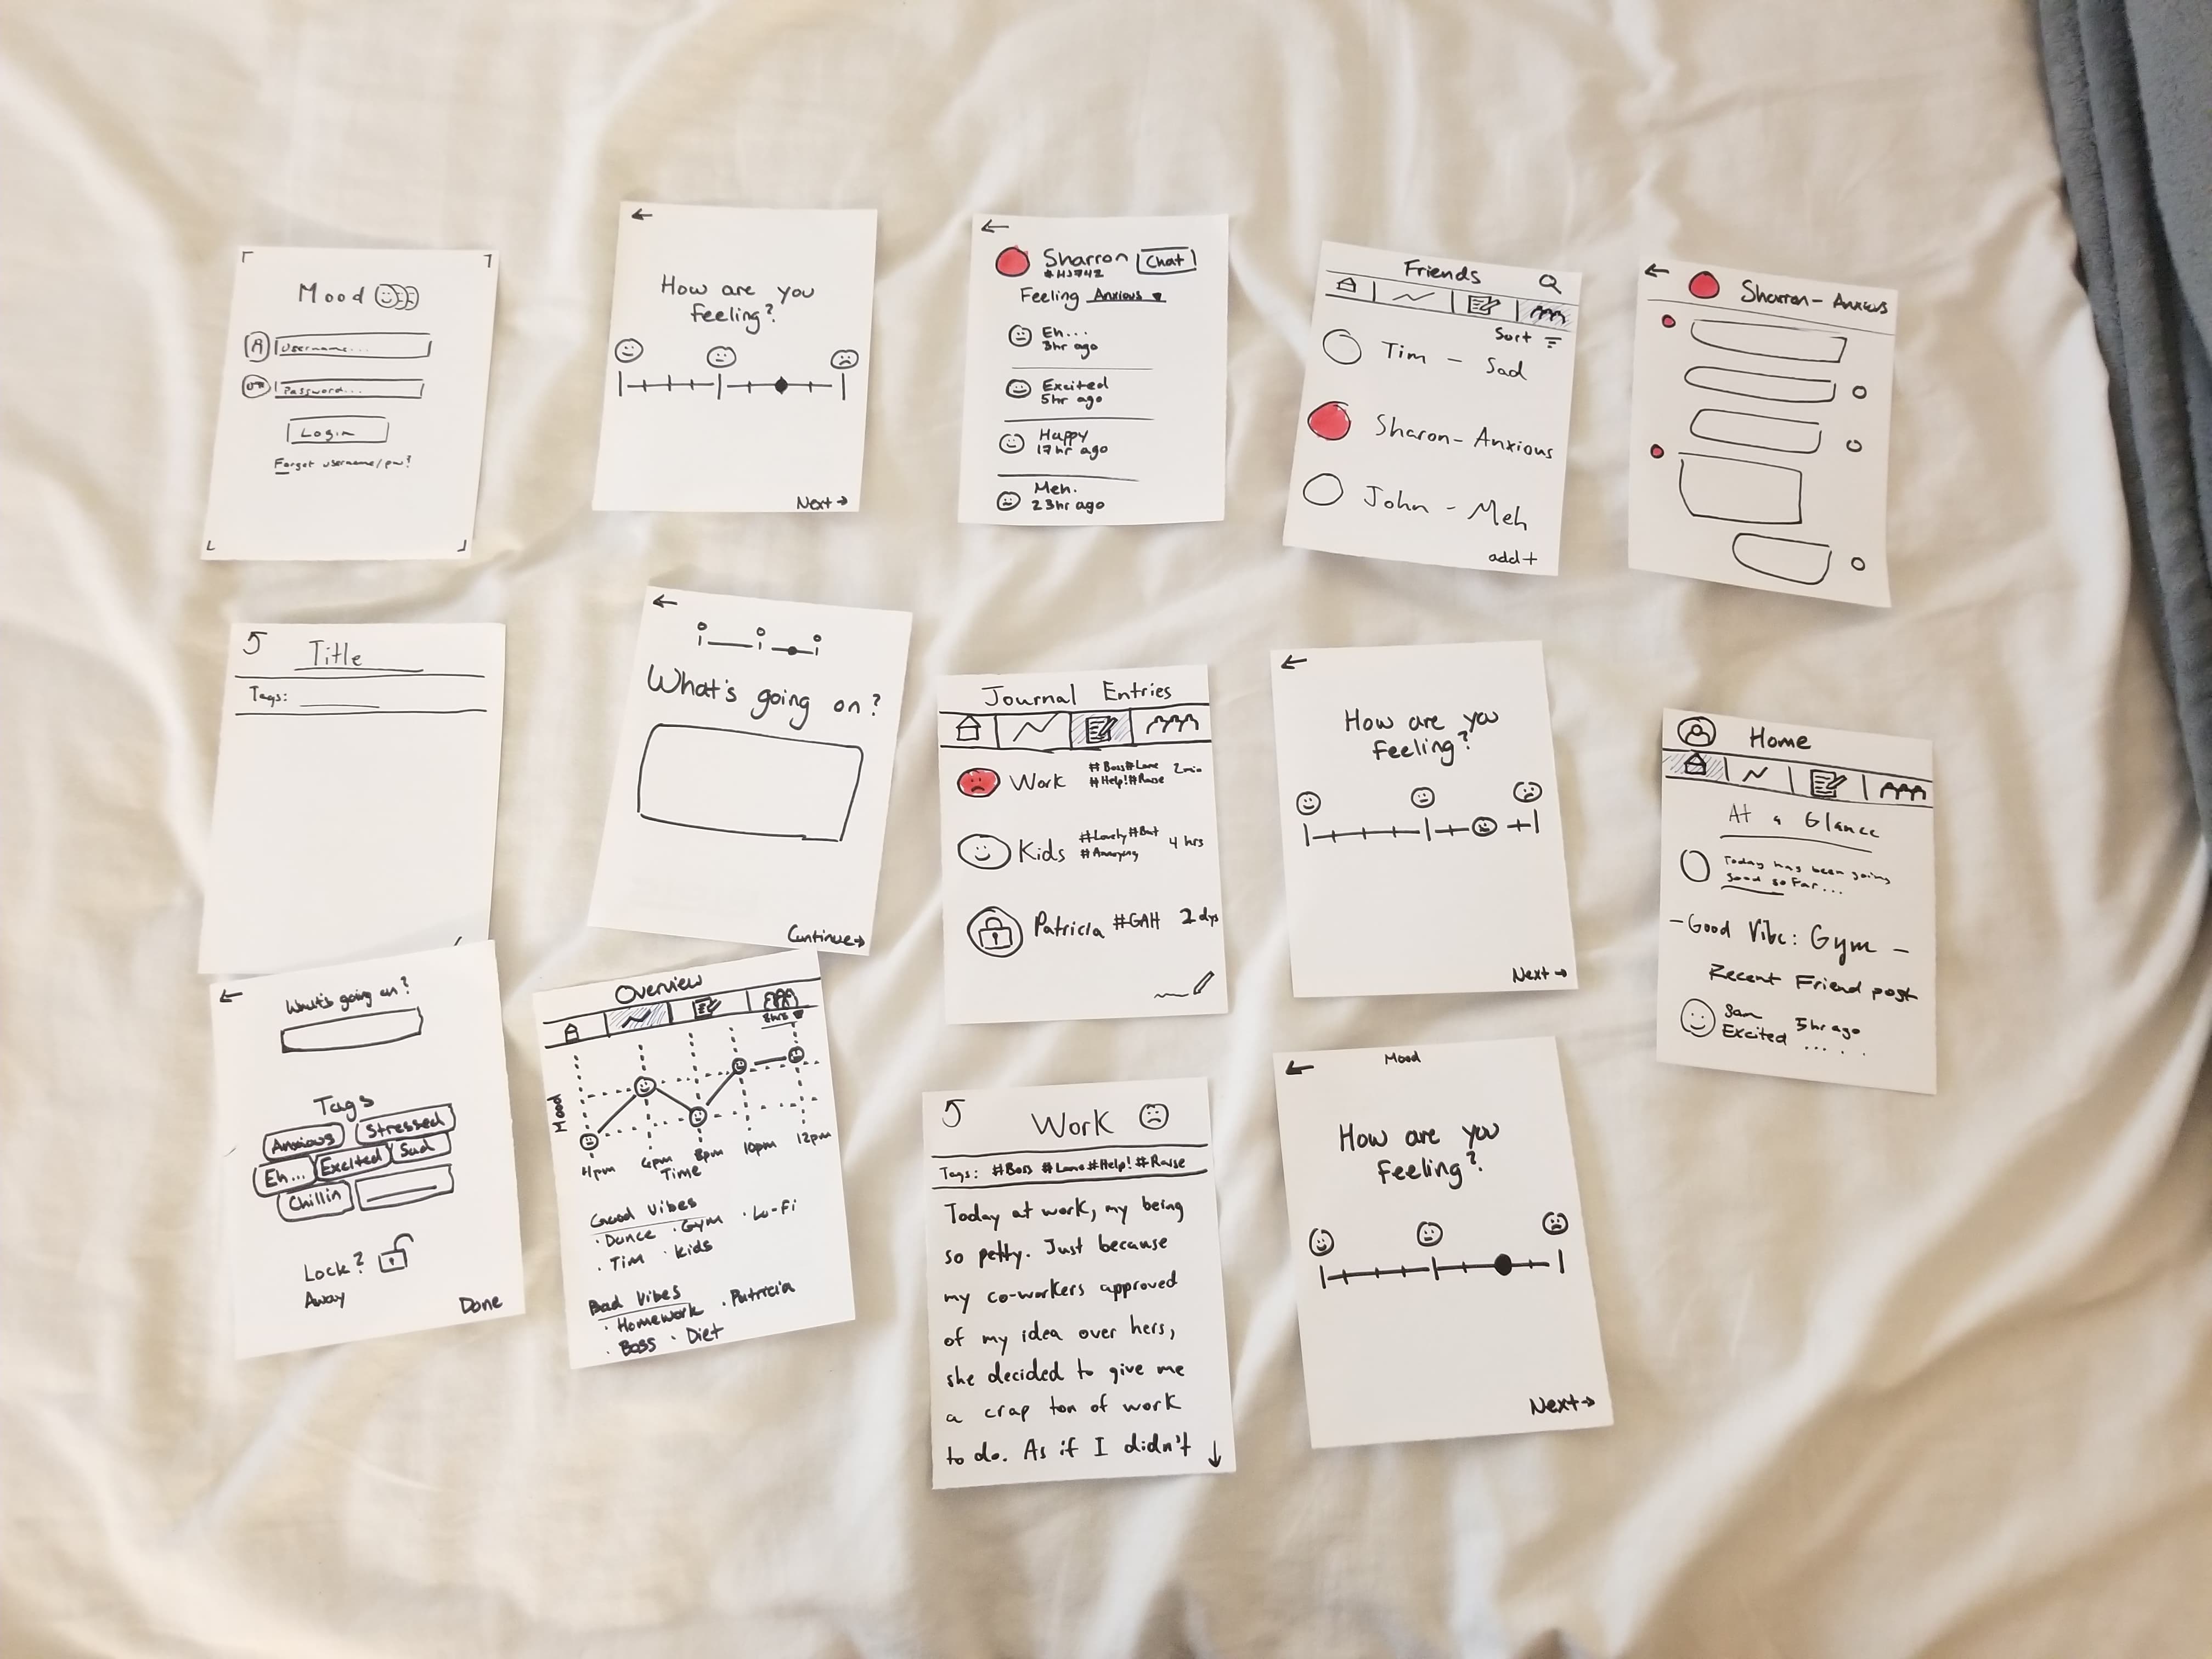 Mood
Username...
Password...
Login
Forgot username/pw?
How are you
feeling?
Next →
Sharron
Chat
#HJ742
Feeling Anxious
Eh...
3hr ago
Excited
5hr ago
Happy
17hr ago
Meh.
23hr ago
Friends
Sort
Tim - Sad
Sharon - Anxious
John - Meh
add+
Sharron - Anxious
Title
Tags:
What's going on?
Continue→
Journal Entries
Work #Boss #Lame 2min
#Help! #Raise
Kids #Lovely #But 4 hrs
#Annoying
Patricia #GAH 2 dys
How are you
feeling?
Next →
Home
At a Glance
Today has been going
good so far...
- Good Vibe: Gym -
Recent Friend post
Sam 5hr ago
Excited .....
What's going on?
Tags
Anxious Stressed
Eh... Excited Sad
Chillin
Lock?
Away
Done
Overview
8hrs
Mood
4pm 6pm 8pm 10pm 12pm
Time
Good Vibes
· Dance · Gym · Lo-Fi
· Tim · Kids
Bad Vibes
· Homework · Patricia
· Boss · Diet
Work
Tags: #Boss #Lame #Help! #Raise
Today at work, my being
so petty. Just because
my co-workers approved
of my idea over hers,
she decided to give me
a crap ton of work
to do. As if I didn't
Mood
How are you
feeling?
Next→